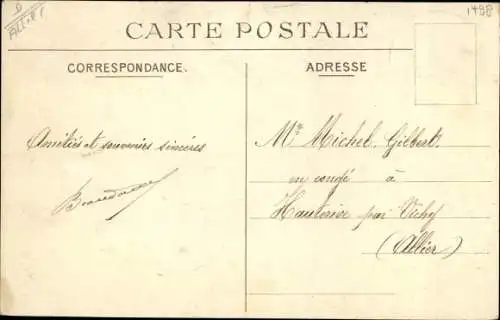 CARTE POSTALE
CORRESPONDANCE.
ADRESSE
Amitiés et souvenirs sincères
Mr Michel Gilbert
en congé à
Hauterive par Vichy
(Allier)